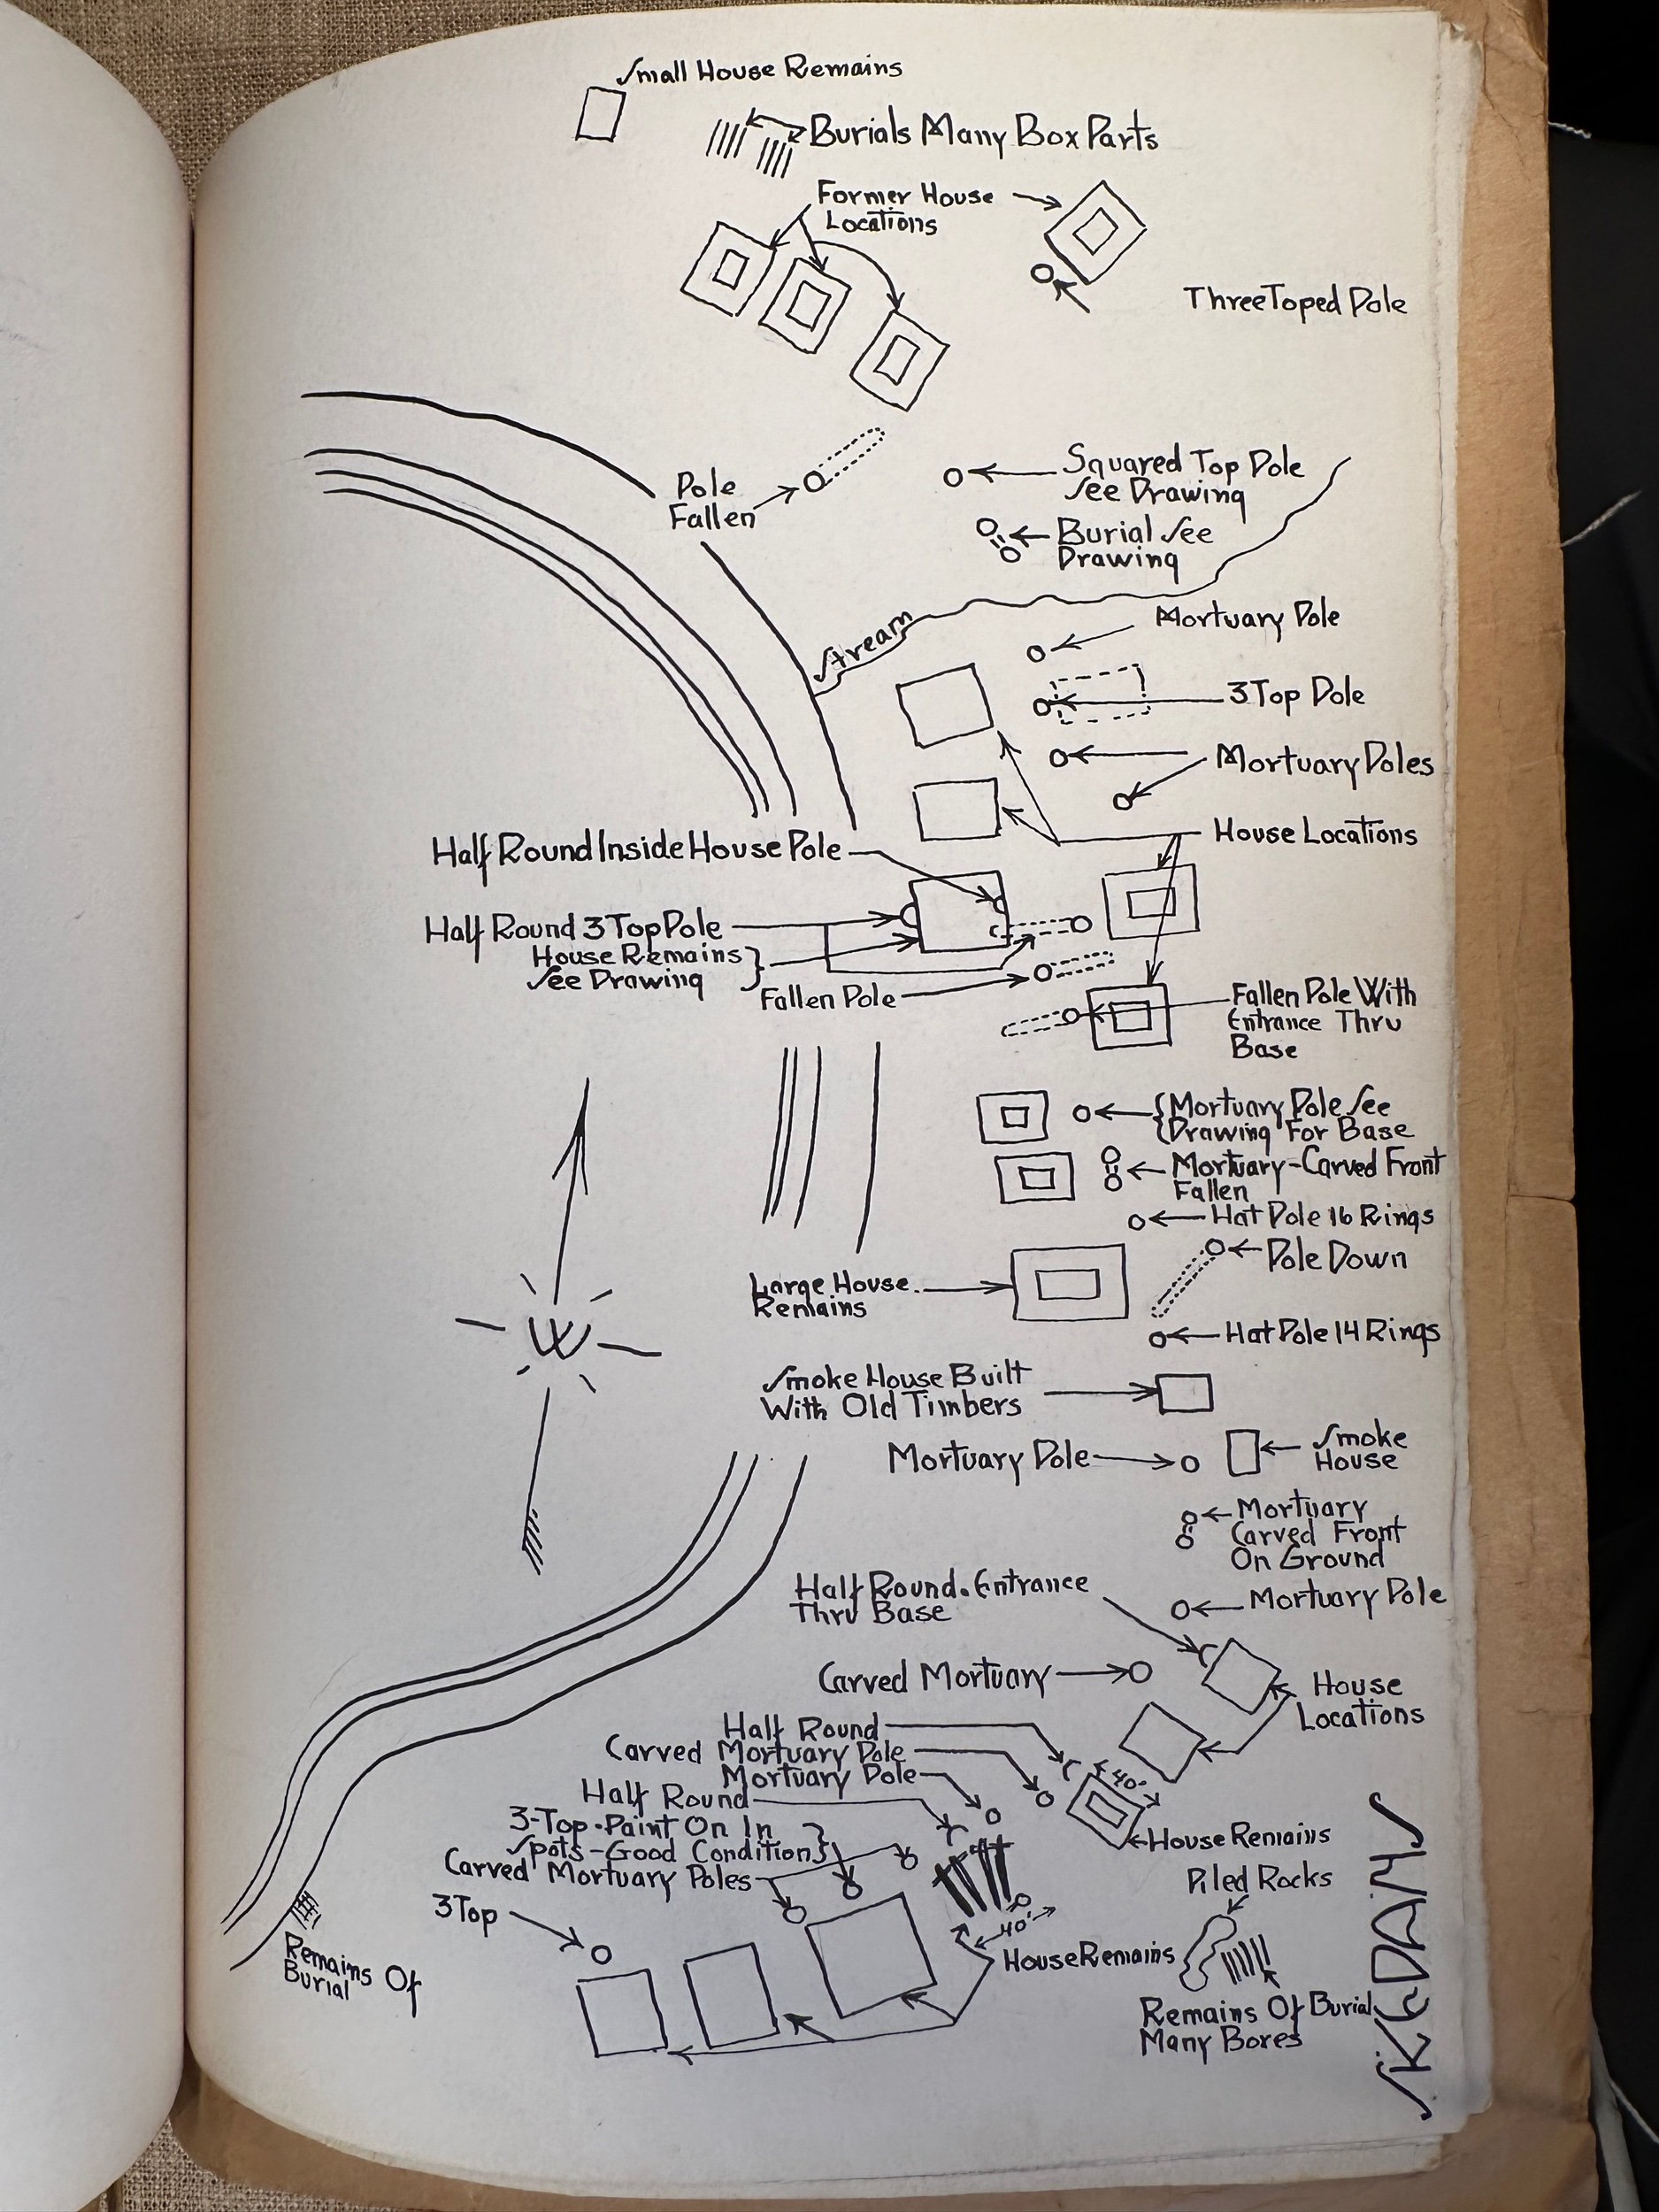 Small House Remains
Burials Many Box Parts
Former House
Locations
Three Toped Pole
Squared Top Pole
See Drawing
Pole
Fallen
Burial See
Drawing
Stream
Mortuary Pole
3 Top Pole
Mortuary Poles
House Locations
Half Round Inside House Pole
Half Round 3 Top Pole
House Remains
See Drawing
Fallen Pole
Fallen Pole With
Entrance Thru
Base
Mortuary Pole See
Drawing For Base
Mortuary-Carved Front
Fallen
Hat Pole 16 Rings
Pole Down
Large House
Remains
Hat Pole 14 Rings
W
Smoke House Built
With Old Timbers
Smoke
House
Mortuary Pole
Mortuary
Carved Front
On Ground
Half Round. Entrance
Thru Base
Mortuary Pole
Carved Mortuary
House
Locations
Half Round
Carved Mortuary Pole
Mortuary Pole
40'
Half Round
3-Top-Paint On In
Spots-Good Condition
Carved Mortuary Poles
House Remains
Piled Rocks
3 Top
40'
House Remains
Remains Of
Burial
Remains Of Burial
Many Bores
SKEDANS